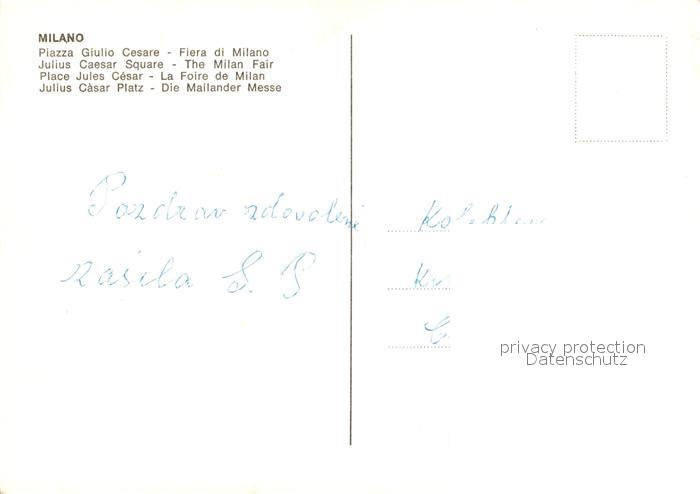 MILANO
Piazza Giulio Cesare - Fiera di Milano
Julius Caesar Square - The Milan Fair
Place Jules César - La Foire de Milan
Julius Càsar Platz - Die Mailander Messe
Pozdrav zdovolené
zasíla S. P
privacy protection
Datenschutz